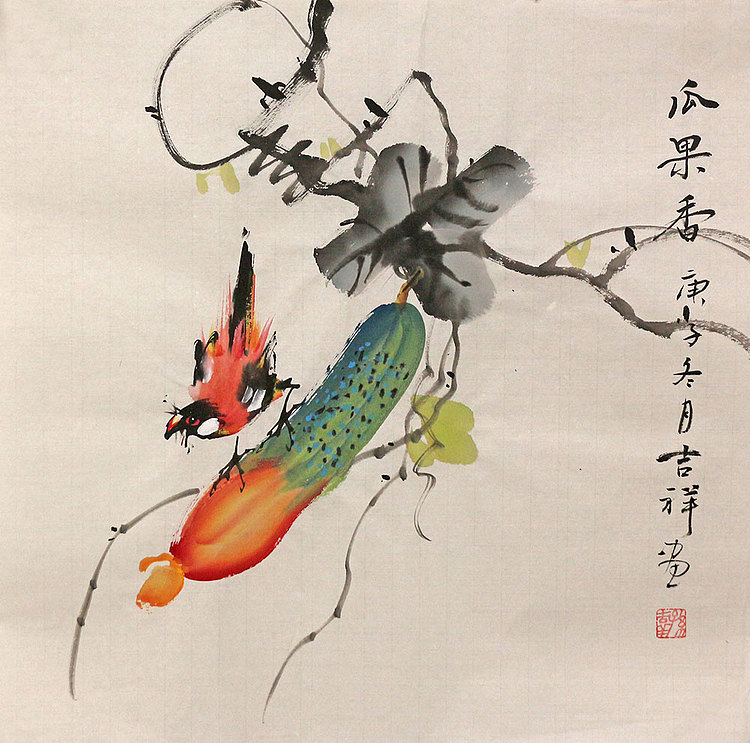 瓜果香 庚子冬月吉祥画